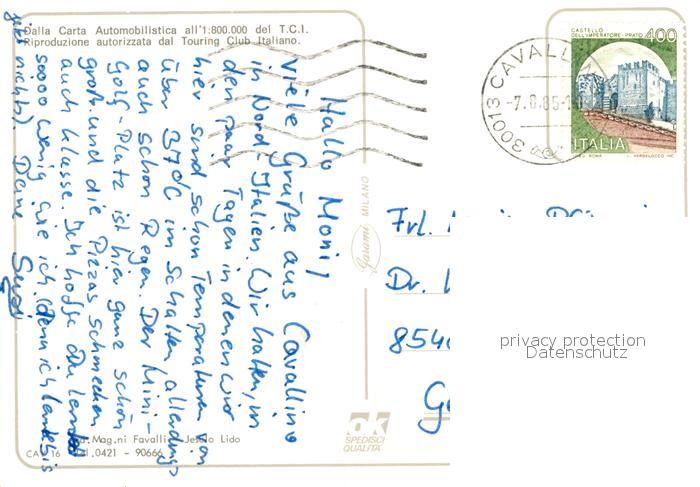 Dalla Carta Automobilistica all'1:800.000 del T.C.I.
Riproduzione autorizzata dal Touring Club Italiano.
Hallo Moni,
viele Grüße aus Cavallino
in Nord-Italien. Wir hatten, in
den paar Tagen in denen wir
hier sind schon Temperaturen von
über 37°C im Schatten allerdings
auch schon Regen. Der Mini-
Golf-Platz ist hier ganz schön
groß und die Pizzas schmecken
auch klasse. Ich hoffe du lernst
soooo wenig wie ich (denn ich lernte bis
nicht). Deine
30013 CAVALL
-7.8.85-1
CASTELLO
DELL'IMPERATORE-PRATO 400
ITALIA
Garami MILANO
Frl.
Dr.
854
G
privacy protection
Datenschutz
Mag.ni Favall Jesolo Lido
CA 16 0421 - 90666
ok
SPEDISCI
QUALITA'